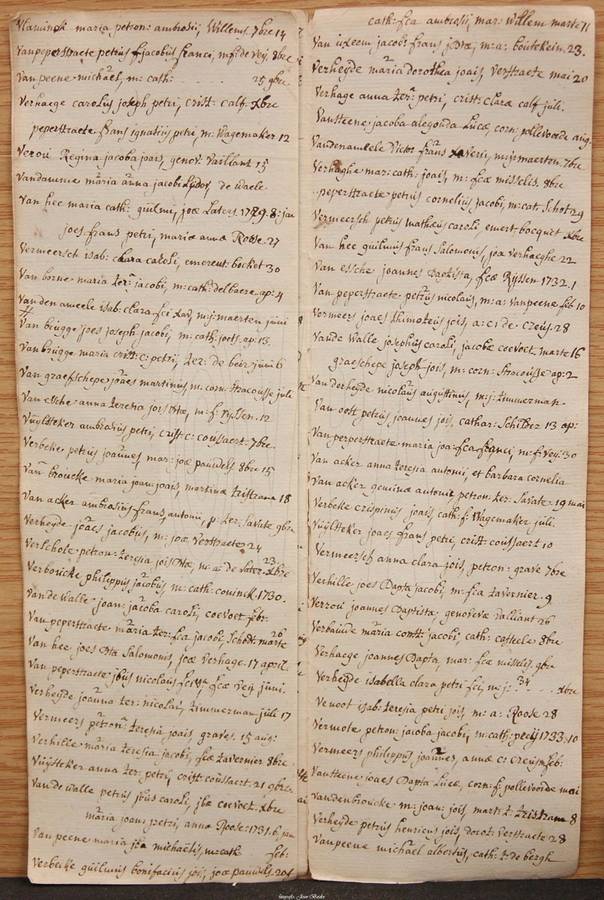 Vlamijnck maria petron: ambrosij, Willems 7bre 14
Vanpeperstraete petrus f. jacobus franci, m: f: de vey. 8bre
Van peene michael, m: cath: 25 9bre
Verhaege carolus joseph petri, crist: calf xbre
peperstraete frans ignatius petri, m: Wagemaker 12
Verou Regina jacoba jois, genov: Vaillant 15
Vandamme maria anna jacobi de Waele
Van hee maria cath: guilmi, joa Laters. 1729. 8: jan
joes frans petri, maria anna Roose. 27
Vermeersch isab: clara caroli, emerent: bocket 30
Van borne maria ter: jacobi, m: cath: delbaere. ap: 4
Vanden ameele isab: clara fca xav, m: j: maerten junii
Van brugge joes joseph jacobi, m: cath: joos. ap. 13.
Van brugge maria crist: c: petri, ter: de beir junii 6
Van graefschepe joaes martinus m: corn: Stracousse julii
Van Essche anna teresia jois Btae, m: f: Ryssen. 12
Vuylsteker ambrosius petri, crist: c: coussaert. 7bre.
Verbeke petrus joannes, mar: joa pauwels 8bre 15
Van broucke maria joan: joais, martina Tristram 18
Van acker ambrosius frans, antonii, p. ter: Savate 9bre
Verheyde joaes jacobus, m: joa Verstraete 24
Verschote petron: teresia jois Btae, m: a: de sater. 23 xbre
Verboucke philippus jacobus, m: cath: couinck. 1730.
Van de Walle joan: jacoba caroli, coevoet febr:
Van peperstraete maria ter: fca jacobi, Schodt marte 26
Van hee joes Bta Salomonis, joae Verhage. 17 april.
Van peperstraete jbus nicolaus fci, fca Vey junii.
Verheyde joanna ter: nicolai, Zimmerman julii 17
Vermeers petron: teresia joais, graves. 15 aug:
Verhille maria teresia jacobi, fca tavernier 8bre.
Vuylsteker anna ter: petri, crist: coussaert. 21 9bre
Van de Walle petrus jbus caroli, jba coevoet. xbre
maria joan: petri, anna Roose: 1731. 6 jan
Van peene maria fca michaelis, m: cath: feb:
Verbeke guilmus bonifacius jois, joa pauwels. 20
cath: fca ambrosij, mar: Willem marte 11
Van uxeem jacobs frans j Bta, m: a: boutekeim. 23.
Verheyde maria dorothea joais, Verstraete mai 20
Verhage anna ter: petri, crist: clara calf julii.
Vansteene jacoba alegonda Lucae, corn: pollevoede aug.
Vandenameele Victor frans Xaverii, m: j: maerten. 7bre
Verhaghe mar: cath: joais, m: fca misselis. 8bre
peperstraete petrus cornelius jacobi, m: cat: Schot 29
Vermeersch petrus matheus caroli emert bocquet xbre
Van hee guilmus frans Salomonis, joa Verhaeghe 22
Van essche joannes Baptista, fca Ryssen 1732. 1
Van peperstraete petrus nicolais, m: a: Vanpeene feb 10
Vermeers joaes thimoteus jois, a: c: de creus. 28
Vande Walle josephus caroli, jacobe coevoet. marte 16
graeschepe joseph jois, m: corn: Stracousse ap: 2
Van derheyde nicolaus augustinus, m: j: Zimmerman
Van oost petrus joannes jois, cathar: Schilder 13 ap:
Van perperstraete maria joa: fca franci, m: f: vey: 30
Van acker anna teresia antonii, et barbara cornelia
Van acker genuina antonii petron: ter: Savate. 19 mai
Verbeke crispinus joais, cath: f: Wagemaker julii.
Vuylsteker joaes frans petri, crist: coussaert 10
Vermeersch anna clara jois petron: grave 7bre
Verhille joes Bapta jacobi, m: fca tavernier. 9
Verou joannes Baptista, genoveva Valliant 26
Verbaude maria const: jacobi, cath: casteele 8bre
Verhaege joannes Bapta, mar: fca misselis 9bre
Verheyde isabella clara petri fci, m: j: 24 xbre
Vervoot isab: teresia petri jois, m: a: Roose 28
Vermote petron: jacoba jacobi, m: cath: pecy 1733: 10
Vermeers philippus joannes, annae c: creus feb:
Vansteene joaes Bapta Lucae, corn: f: pollevoede mai
Vandenbroucke: m: joan: jois, mart: t: Tristram 8
Verheyde petrus henricus jois, dorot: Verstraete 28
Vanpeene michael albertus, cath: t: de bergh